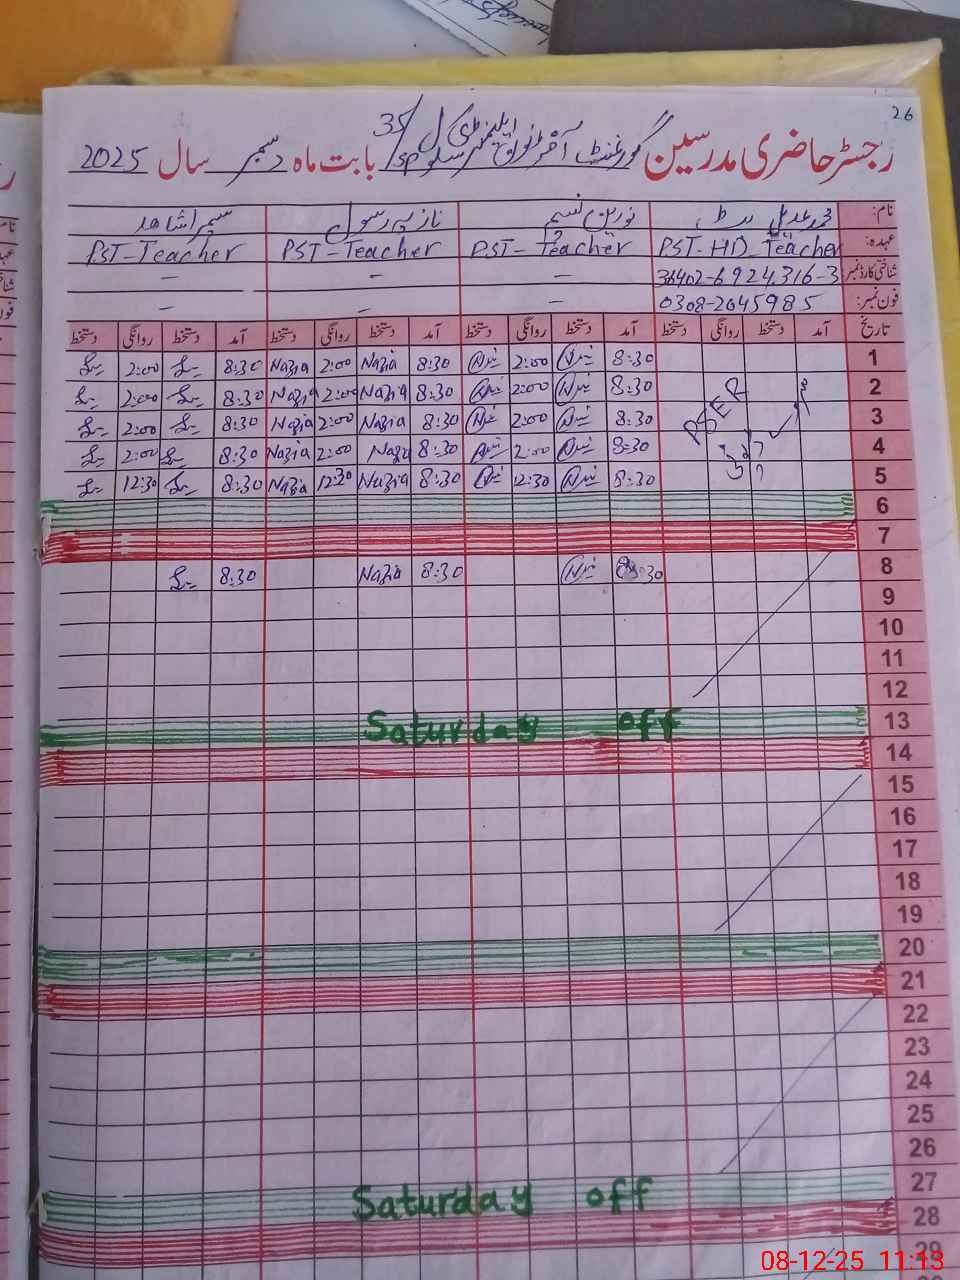 26
رجسٹر حاضری مدرسین گورنمنٹ آفٹرنون ایلیمنٹری سکول 35/SP بابت ماہ دسمبر سال 2025
نام: محمد عدیل نورین نسیم نازیہ رسول سمیرا شاھد
عہدہ: PST-HD Teacher PST-Teacher PST-Teacher PST-Teacher
شناختی کارڈ نمبر: 36402-6924316-3 - - -
فون نمبر: 0308-2045985 - - -
تاریخ آمد دستخط روانگی دستخط آمد دستخط روانگی دستخط آمد دستخط روانگی دستخط آمد دستخط روانگی دستخط
1 8:30 2:00 8:30 Nazia 2:00 Nazia 8:30 2:00
2 8:30 2:00 8:30 Nazia 2:00 Nazia 8:30 2:00
PSER
3 8:30 2:00 8:30 Nazia 2:00 Nazia 8:30 2:00
4 8:30 2:00 8:30 Nazia 2:00 Nazia 8:30 2:00
5 8:30 12:30 8:30 Nazia 12:30 Nazia 8:30 12:30
6
7
8 8:30 8:30 Nazia 8:30
9
10
11
12
13 Saturday off
14
15
16
17
18
19
20
21
22
23
24
25
26
27 Saturday off
28
29
08-12-25 11:13